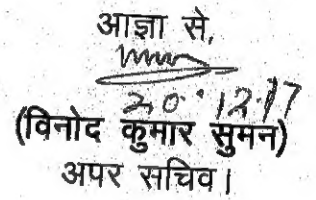 आज्ञा से,
20.12.17
(विनोद कुमार सुमन)
अपर सचिव।